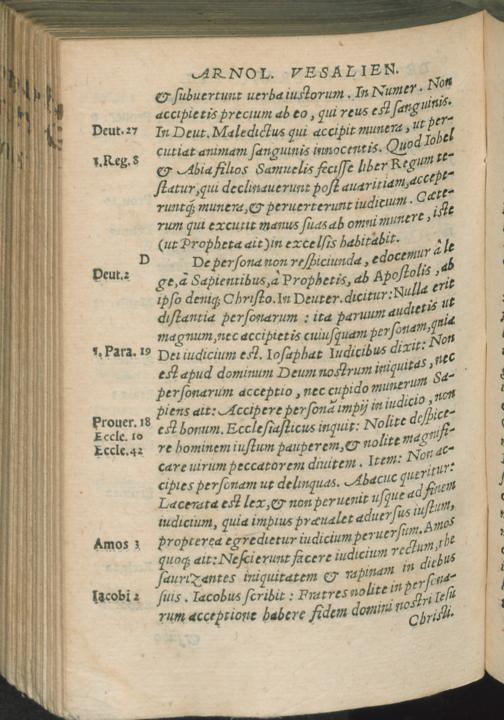 ARNOL. VESALIEN.
& subuertunt uerba iustorum. In Numer. Non
accipietis precium ab eo, qui reus est sanguinis.
Deut. 27 In Deut. Maledictus qui accipit munera, ut per-
cutiat animam sanguinis innocentis. Quod Iohel
1. Reg. 8 & Abia filios Samuelis fecisse liber Regum te-
statur, qui declinauerunt post auaritiam, accepe-
runtq; munera, & peruerterunt iudicium. Cæte-
rum qui excutit manus suas ab omni munere, iste
(ut Propheta ait) in excelsis habitabit.
D De persona non respiciunda, edocemur à le
Deut. 2 ge, à Sapientibus, à Prophetis, ab Apostolis, ab
ipso deniq; Christo. In Deuter. dicitur: Nulla erit
distantia personarum: ita paruum audietis ut
magnum, nec accipietis cuiusquam personam, quia
1. Para. 19 Dei iudicium est. Iosaphat Iudicibus dixit: Non
est apud dominum Deum nostrum iniquitas, nec
personarum acceptio, nec cupido munerum. Sa-
piens ait: Accipere personã impij in iudicio, non
Prouer. 18 est bonum. Ecclesiasticus inquit: Nolite despice-
Eccle. 10 re hominem iustum pauperem, & nolite magnifi-
Eccle. 42 care uirum peccatorem diuitem. Item: Non ac-
cipies personam ut delinquas. Abacuc queritur:
Lacerata est lex, & non peruenit usque ad finem
iudicium, quia impius præualet aduersus iustum,
propterea egredietur iudicium peruersum. Amos
Amos 3 quoq; ait: Nescierunt facere iudicium rectum, the
saurizantes iniquitatem & rapinam in diebus
Iacobi 2 suis. Iacobus scribit: Fratres nolite in persona-
rum acceptione habere fidem domini nostri Iesu
Christi.